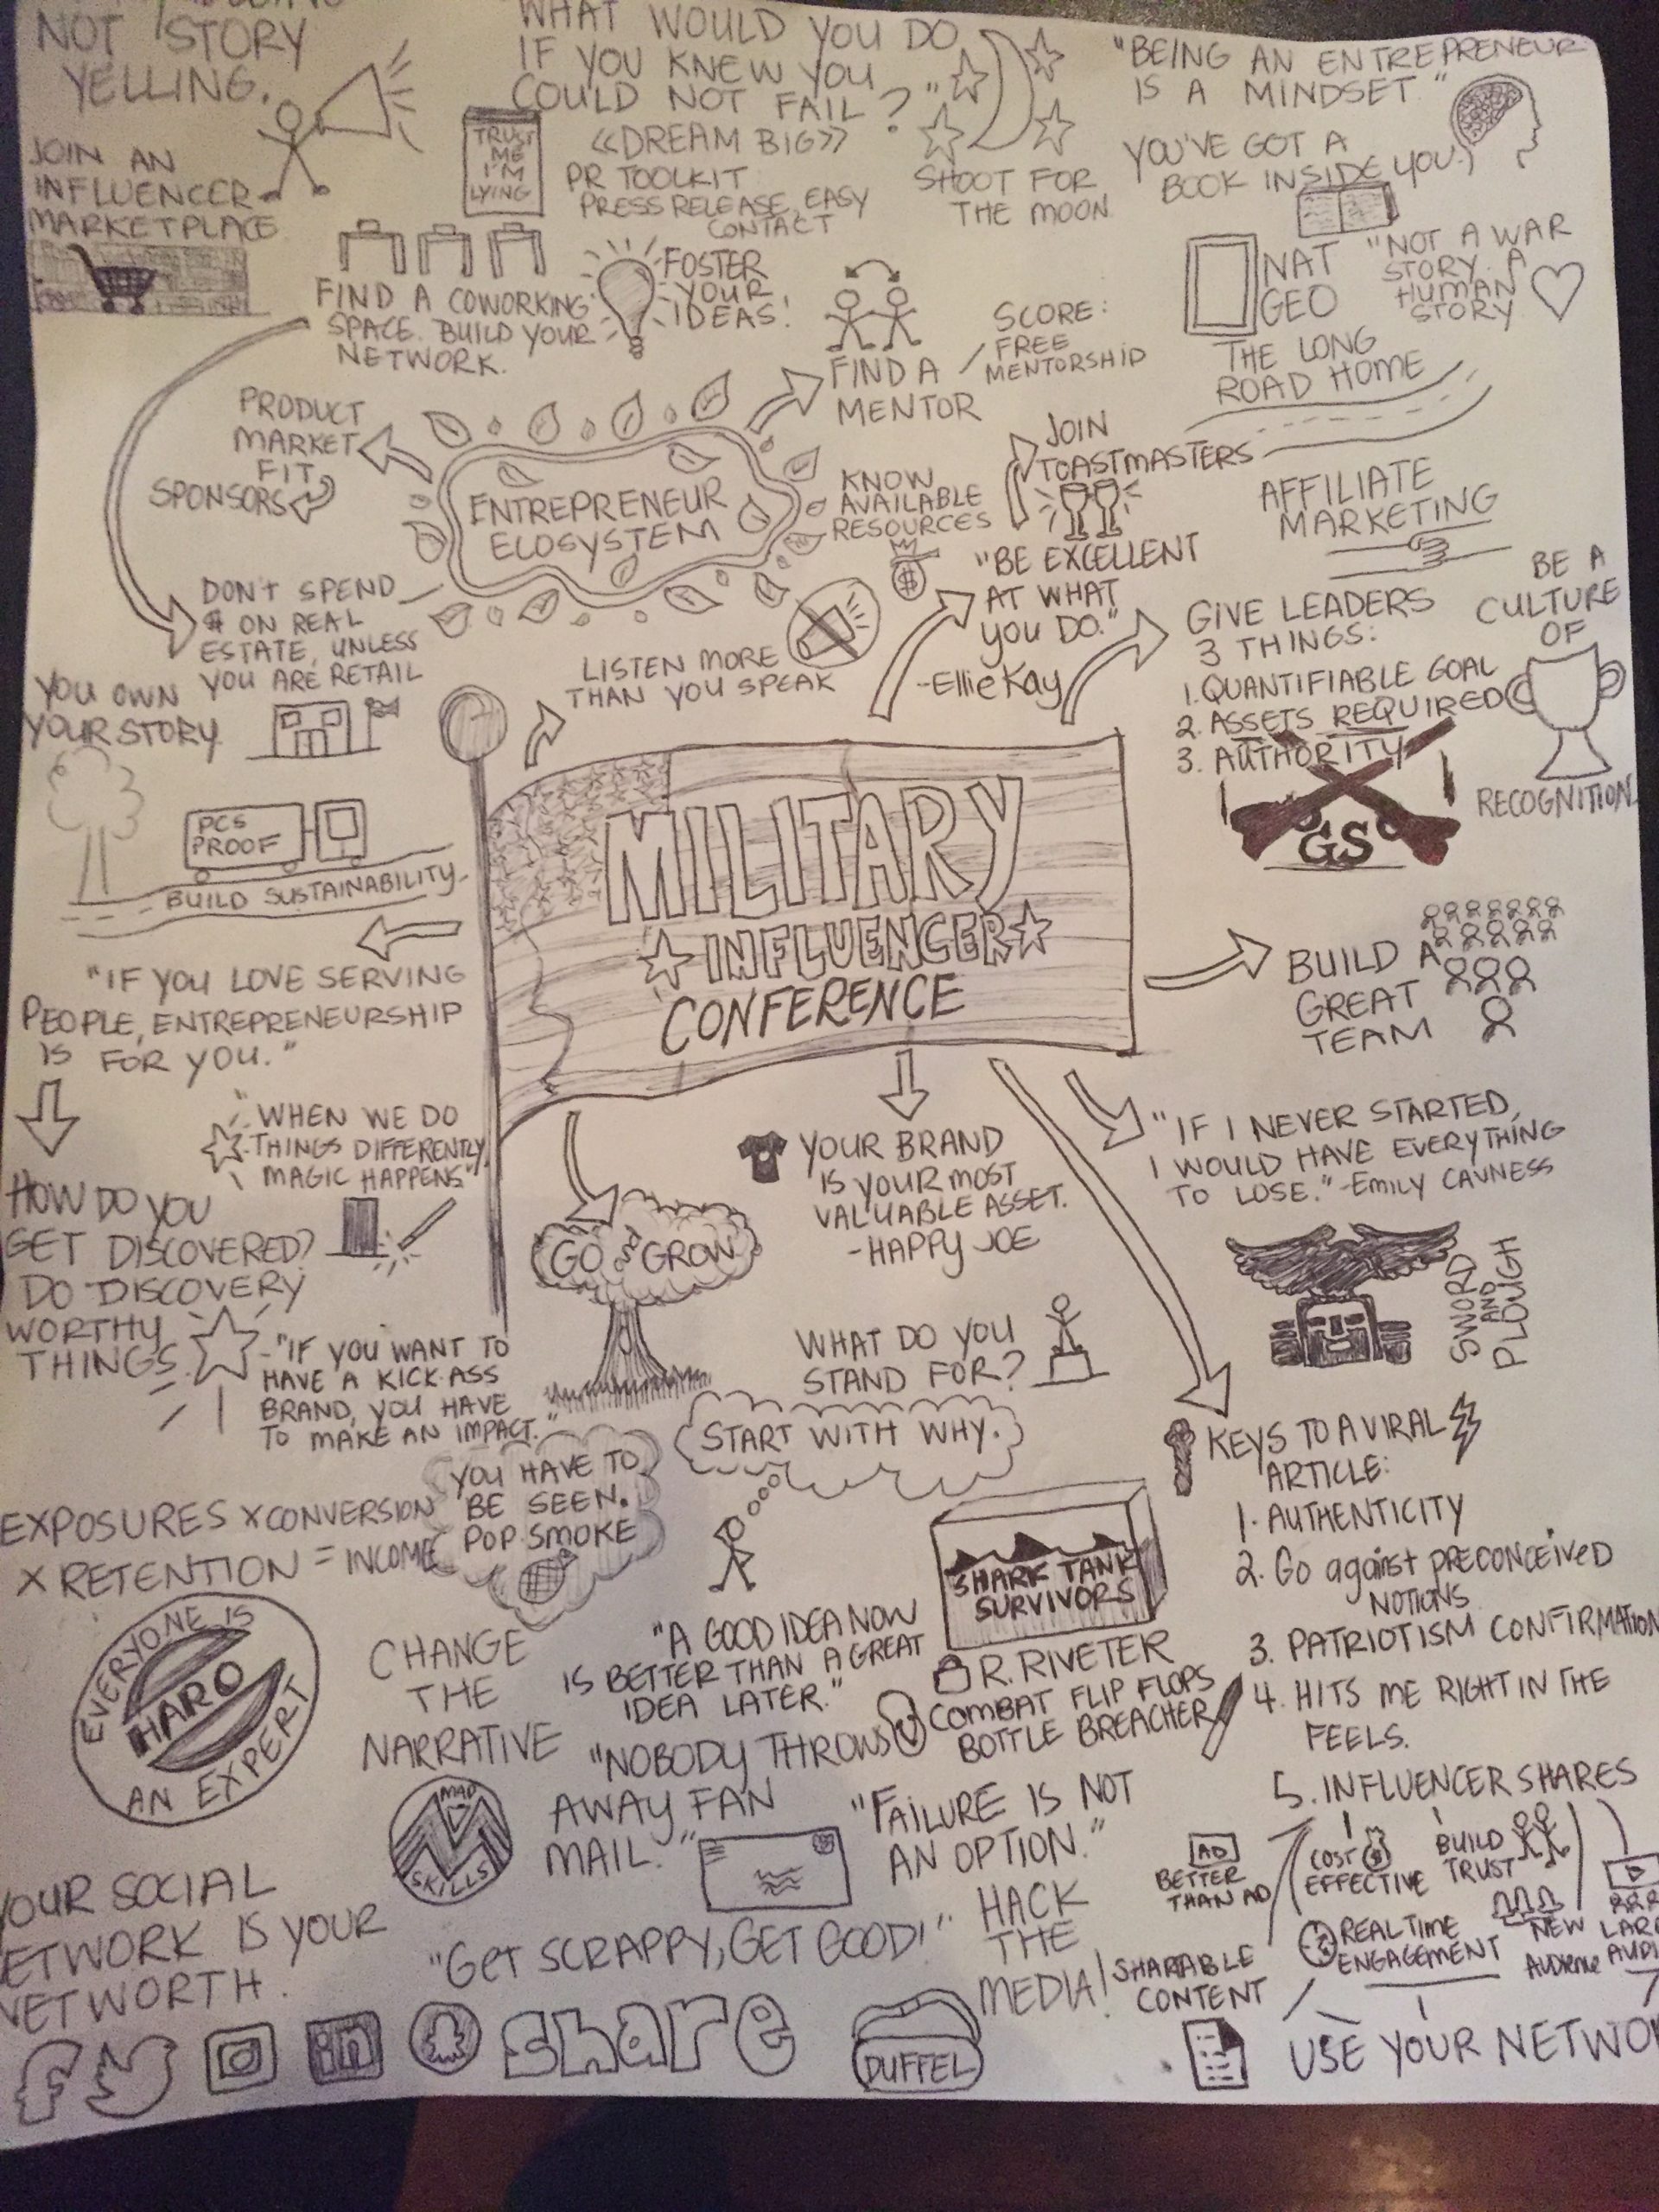 NOT STORY
YELLING.
WHAT WOULD YOU DO
IF YOU KNEW YOU
COULD NOT FAIL?"
<<DREAM BIG>>
PR TOOLKIT
PRESS RELEASE, EASY
CONTACT
TRUST
ME
I'M
LYING
SHOOT FOR
THE MOON
"BEING AN ENTREPRENEUR
IS A MINDSET."
YOU'VE GOT A
BOOK INSIDE YOU.
JOIN AN
INFLUENCER
MARKETPLACE
FIND A COWORKING
SPACE. BUILD YOUR
NETWORK.
FOSTER
YOUR
IDEAS!
FIND A
MENTOR
SCORE:
FREE
MENTORSHIP
NAT
GEO
"NOT A WAR
STORY. A
HUMAN
STORY.
THE LONG
ROAD HOME
PRODUCT
MARKET
FIT
SPONSORS
ENTREPRENEUR
ECOSYSTEM
KNOW
AVAILABLE
RESOURCES
$
JOIN
TOASTMASTERS
AFFILIATE
MARKETING
DON'T SPEND
$ ON REAL
ESTATE, UNLESS
YOU ARE RETAIL
LISTEN MORE
THAN YOU SPEAK
"BE EXCELLENT
AT WHAT
YOU DO."
-Ellie Kay
GIVE LEADERS
3 THINGS:
1. QUANTIFIABLE GOAL
2. ASSETS REQUIRED
3. AUTHORITY
GS
BE A
CULTURE
OF
RECOGNITION
YOU OWN
YOUR STORY
PCS
PROOF
BUILD SUSTAINABILITY
MILITARY
INFLUENCER
CONFERENCE
BUILD A
GREAT
TEAM
"IF YOU LOVE SERVING
PEOPLE, ENTREPRENEURSHIP
IS FOR YOU."
"WHEN WE DO
THINGS DIFFERENTLY,
MAGIC HAPPENS"
HOW DO YOU
GET DISCOVERED?
DO DISCOVERY
WORTHY
THINGS.
-"IF YOU WANT TO
HAVE A KICK-ASS
BRAND, YOU HAVE
TO MAKE AN IMPACT."
GO AND GROW
YOUR BRAND
IS YOUR MOST
VALUABLE ASSET.
-HAPPY JOE
"IF I NEVER STARTED,
I WOULD HAVE EVERYTHING
TO LOSE." -EMILY CAVNESS
SWORD
AND
PLOUGH
WHAT DO YOU
STAND FOR?
START WITH WHY.
EXPOSURES X CONVERSION
X RETENTION = INCOME
YOU HAVE TO
BE SEEN.
POP SMOKE
SHARK TANK
SURVIVORS
R. RIVETER
COMBAT FLIP FLOPS
BOTTLE BREACHER
KEYS TO A VIRAL
ARTICLE:
1. AUTHENTICITY
2. Go against PRECONCEIVED
NOTIONS
3. PATRIOTISM CONFIRMATION
4. HITS ME RIGHT IN THE
FEELS.
5. INFLUENCER SHARES
EVERYONE IS
HARO
AN EXPERT
CHANGE
THE
NARRATIVE
"A GOOD IDEA NOW
IS BETTER THAN A GREAT
IDEA LATER."
MAD
SKILLS
"NOBODY THROWS
AWAY FAN
MAIL."
"FAILURE IS NOT
AN OPTION."
AD
BETTER
THAN AD
COST
EFFECTIVE
BUILD
TRUST
REAL TIME
ENGAGEMENT
NEW
AUDIENCE
YOUR SOCIAL
NETWORK IS YOUR
NETWORTH.
"GET SCRAPPY, GET GOOD!"
HACK
THE
MEDIA!
SHARABLE
CONTENT
in
share
DUFFEL
USE YOUR NETWO